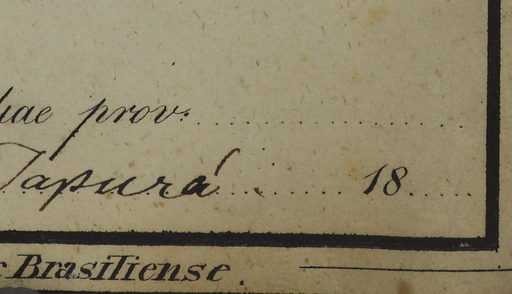 prov.
Japurá 18
Brasiliense.